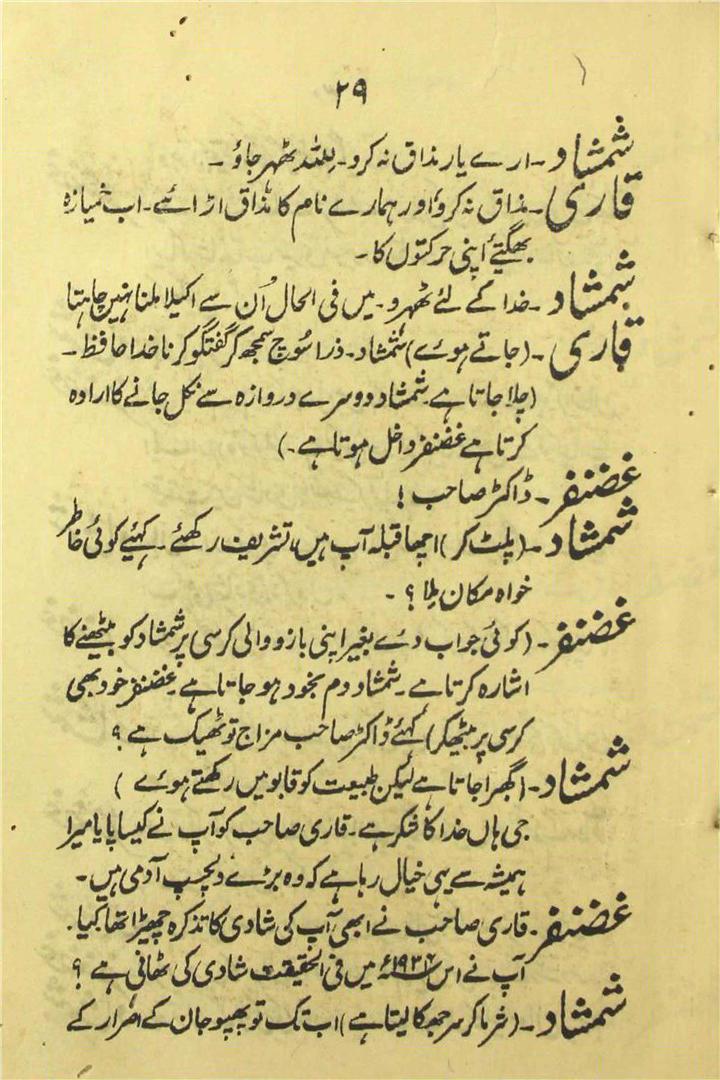 ۲۹
شمشاد۔ ارے یار مذاق نہ کرو۔ للہ ٹھہر جاؤ ۔
قاری۔ مذاق نہ کرو اور ہمارے نام کا مذاق اڑائے۔ اب خمیازہ
بھگتیے اپنی حرکتوں کا ۔
شمشاد ۔ خدا کے لئے ٹھہرو۔ میں فی الحال اُن سے اکیلا ملنا نہیں چاہتا
قاری ۔ (جاتے ہوے) شمشاد۔ ذرا سوچ سمجھ کر گفتگو کرنا خدا حافظ ۔
(چلا جاتا ہے۔ شمشاد دوسرے دروازہ سے نکل جانے کا ارادہ
کرتا ہے غضنفر داخل ہوتا ہے ۔)
غضنفر ۔ ڈاکٹر صاحب !
شمشاد ۔ (پلٹ کر) اچھا قبلہ آپ ہیں، تشریف رکھئے ۔ کہئیے کوئی خاطر
خواہ مکان ملا ؟ ۔
غضنفر ۔ (کوئی جواب دے بغیر اپنی بازو والی کرسی پر شمشاد کو بیٹھنے کا
اشارہ کرتا ہے ۔ شمشاد دم بخود ہو جاتا ہے ۔ غضنفر خود بھی
کرسی پر بیٹھکر) کہئے ڈاکٹر صاحب مزاج تو ٹھیک ہے ؟
شمشاد ۔ (گھبرا جاتا ہے لیکن طبیعت کو قابو میں رکھتے ہوے )
جی ہاں خدا کا شکر ہے ۔ قاری صاحب کو آپ نے کیسا پایا میرا
ہمیشہ سے یہی خیال رہا ہے کہ وہ بڑے دلچسپ آدمی ہیں ۔
غضنفر ۔ قاری صاحب نے ابھی آپ کی شادی کا تذکرہ چھیڑا تھا کیا.
آپ نے اس ۱۹۳۴ء میں فی الحقیقت شادی کی ٹھانی ہے ؟
شمشاد ۔ (شرما کر سر جھکا لیتا ہے) اب تک تو پھپو جان کے اصرار کے